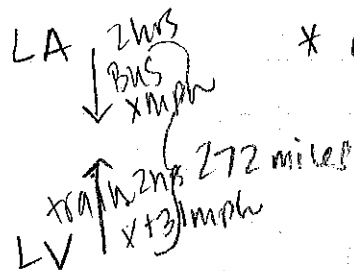 LA 2hrs *
Bus
x mph
272 miles
train 2hrs
x+31mph
LV